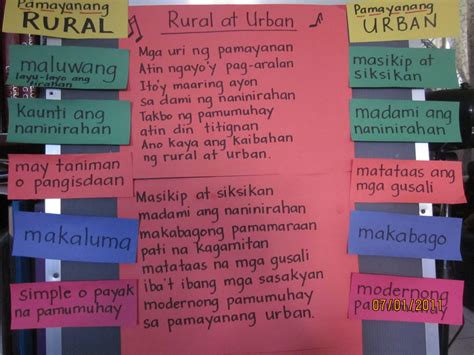 Pamayanang
RURAL
maluwang
layu-layo ang
tirahan
Kaunti ang
naninirahan
may taniman
o pangisdaan
makaluma
simple o payak
na pamumuhay
Rural at Urban
Mga uri ng pamayanan
Atin ngayo'y pag-aralan
Ito'y maaring ayon
sa dami ng naninirahan
Takbo ng pamumuhay
atin din titignan
Ano kaya ang kaibahan
ng rural at urban.
Masikip at siksikan
madami ang naninirahan
makabagong pamamaraan
pati na Kagamitan
matataas na mga gusali
iba't ibang mga sasakyan
modernong pamumuhay
sa pamayanang urban.
Pamayanang
URBAN
masikip at
siksikan
madami ang
naninirahan
matataas ang
mga gusali
makabago
modernong
07/01/2011